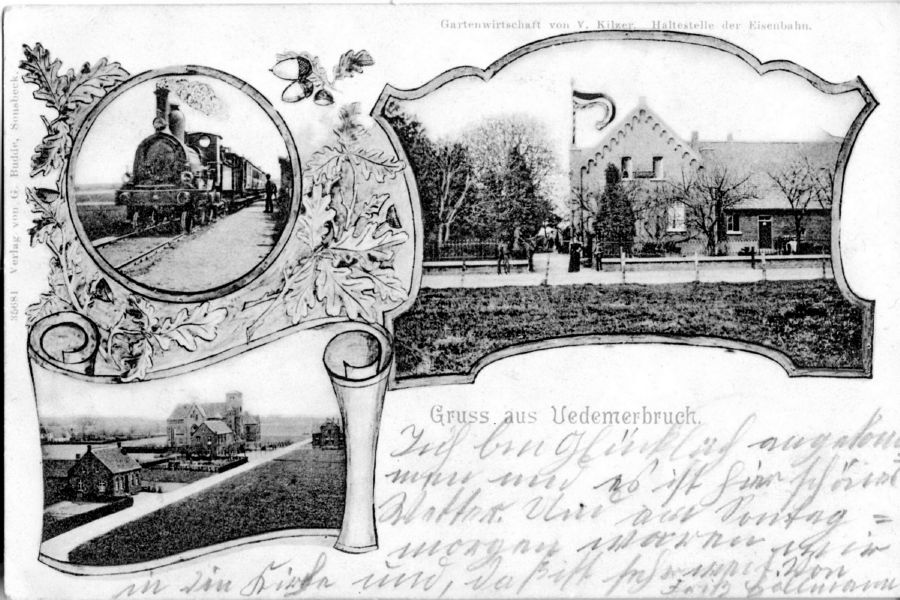 Gartenwirtschaft von V. Kilzer. Haltestelle der Eisenbahn.
35681 Verlag von G. Budde, Sonsbeck.
Gruss aus Uedemerbruch.
Ich bin Glücklich angekom
men und es ist hier schönes
Wetter. Und am Sontag =
morgen waren wir
in die Kirche und, das ist sehr weit. Von
Fritz